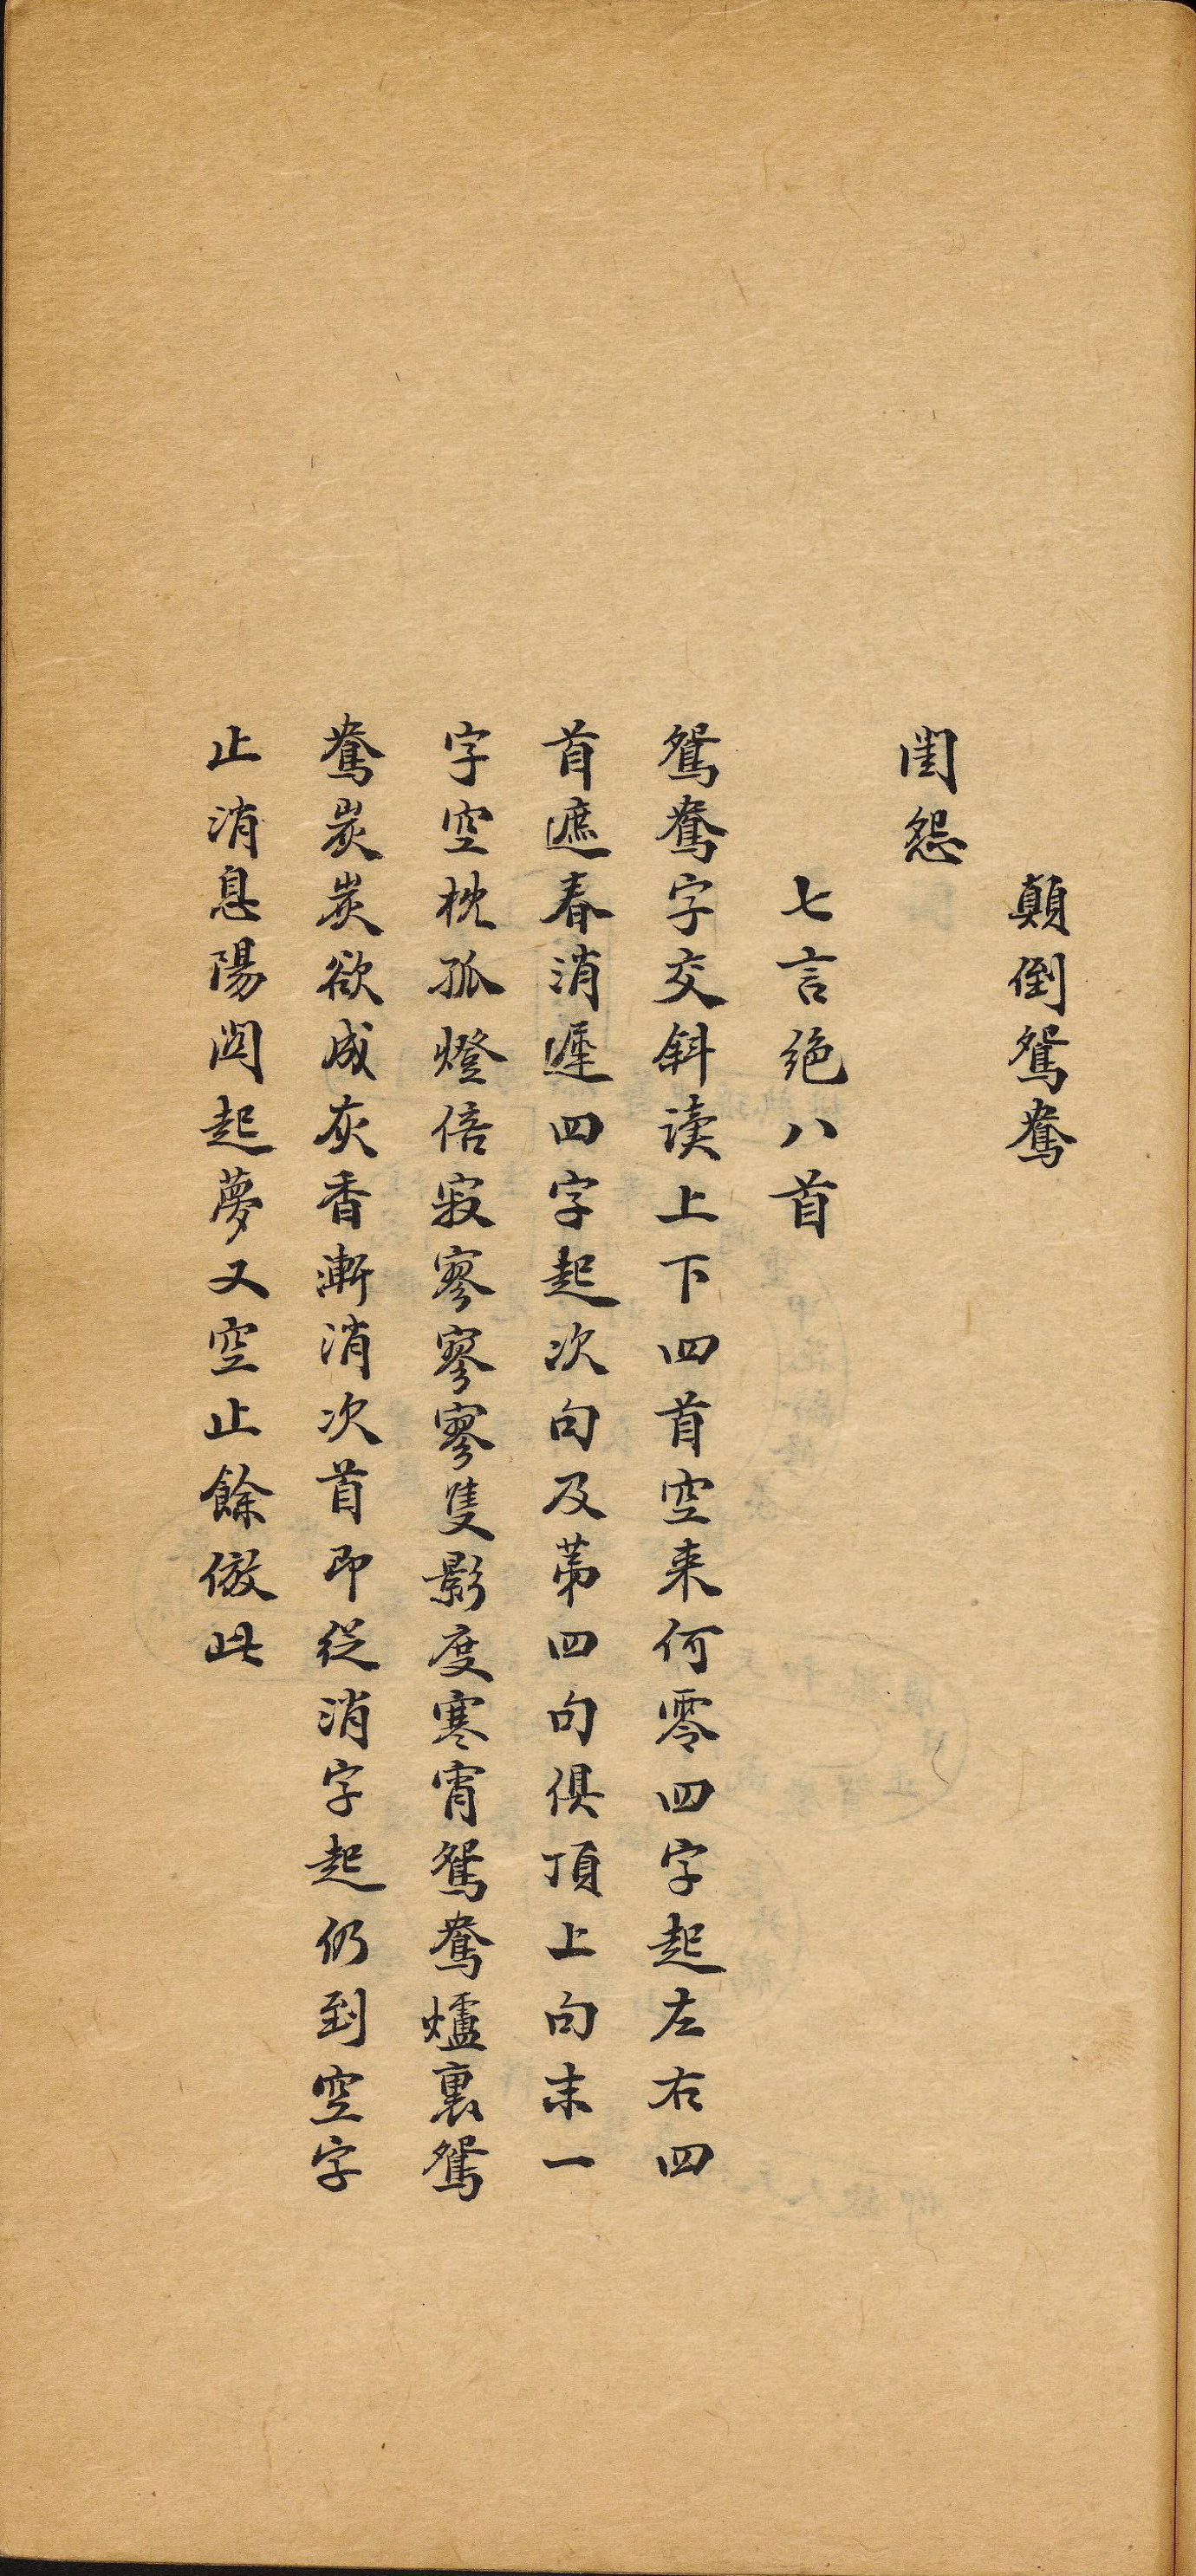 顛倒鴛鴦
閨怨
七言絶八首
鴛鴦字交斜读上下四首空来何零四字起左右四
首遮春消遲四字起次句及苐四句俱頂上句末一
字空枕孤燈倍寂寥寥寥隻影度寒宵鴛鴦爐裏鴛
鴦炭炭欲成灰香漸消次首即從消字起仍到空字
止消息陽関起夢又空止餘倣此